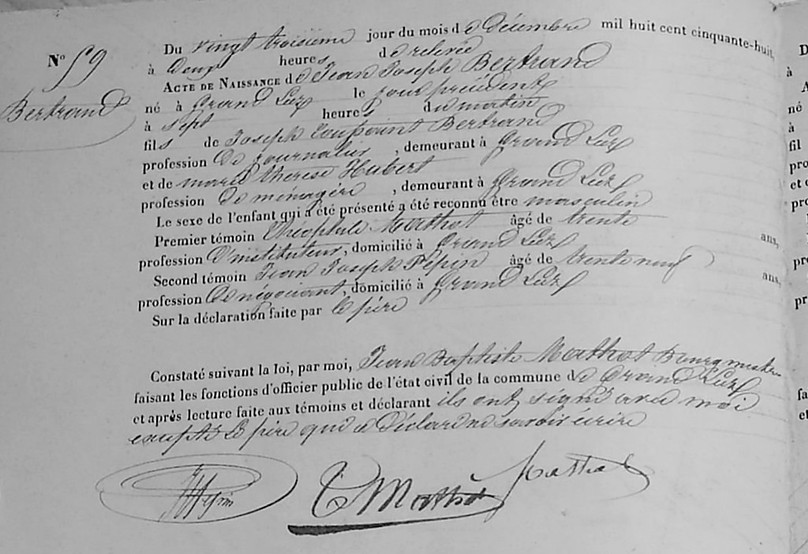 N° 59
Bertrand
Du vingt troisième jour du mois de Décembre mil huit cent cinquante-huit,
à Deux heures de relevée
ACTE DE NAISSANCE de Jean Joseph Bertrand
né à Grand Leez le jour précédent
à sept heures du matin
fils de Joseph Toupoint Bertrand
profession de journalier, demeurant à Grand Leez
et de marie therese Hubert
profession de ménagère, demeurant à Grand Leez
Le sexe de l'enfant qui a été présenté a été reconnu être masculin
Premier témoin Théophile Mathot âgé de trente ans,
profession d'instituteur, domicilié à Grand Leez
Second témoin Jean Joseph Pépin âgé de trente neuf ans,
profession de négociant, domicilié à Grand Leez
Sur la déclaration faite par le père
Constaté suivant la loi, par moi, Jean Baptiste Mathot Bourgmestre
faisant les fonctions d'officier public de l'état civil de la commune de Grand Leez
et après lecture faite aux témoins et déclarant ils ont signé avec moi
excepté le père qui a déclaré ne savoir écrire
JJ Pépin
T Mathot
Mathot